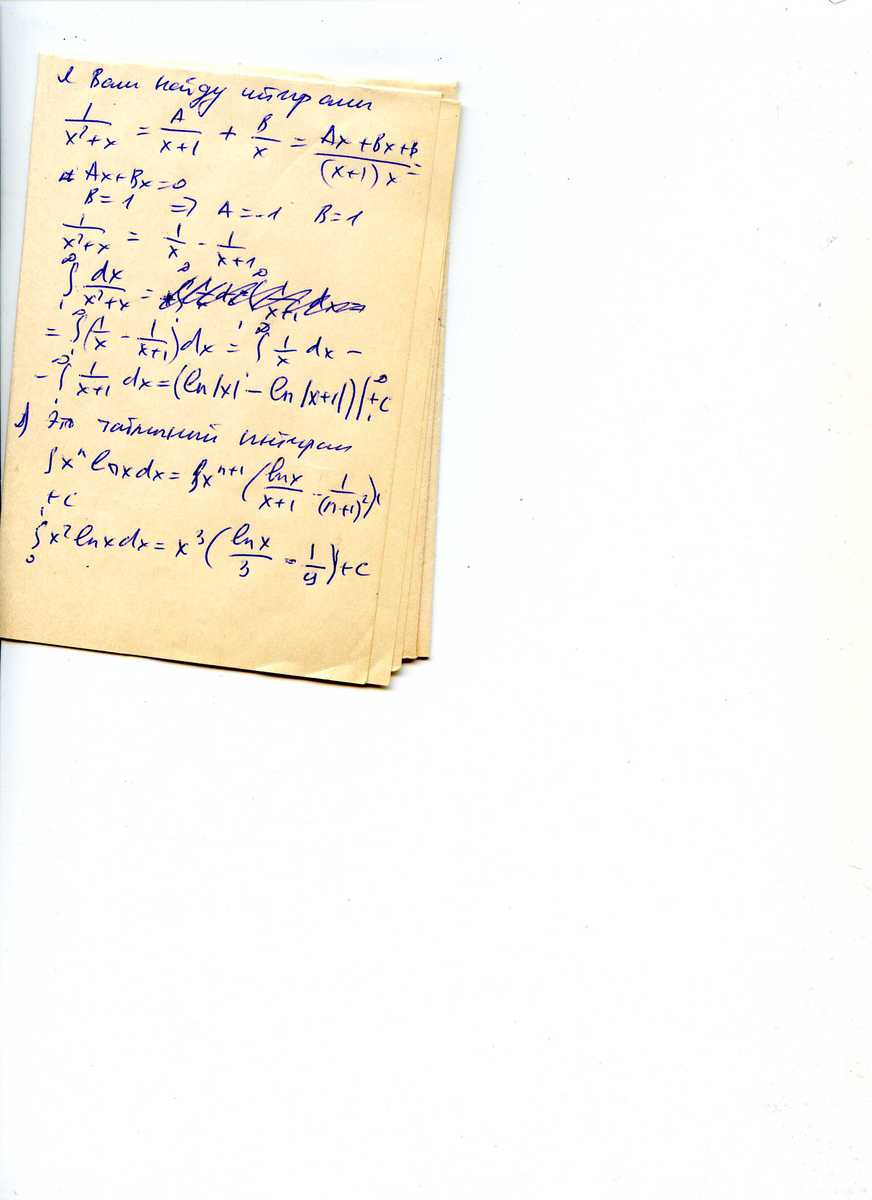 Я Вам найду интегралы
1/(x²+x) = A/(x+1) + B/x = (Ax+Bx+B)/((x+1)x) =
Ax+Bx=0
B=1 => A=-1 B=1
1/(x²+x) = 1/x - 1/(x+1)
∫₁^∞ dx/(x²+x) =
= ∫₁^∞ (1/x - 1/(x+1))dx = ∫₁^∞ 1/x dx -
- ∫₁^∞ 1/(x+1) dx = (ln|x| - ln|x+1|)|₁^∞ +C
) Это табличный интеграл
∫xⁿ lnx dx = x^(n+1) (lnx/(x+1) - 1/(n+1)²)
+C
∫₀¹ x² lnx dx = x³ (lnx/3 - 1/9) +C